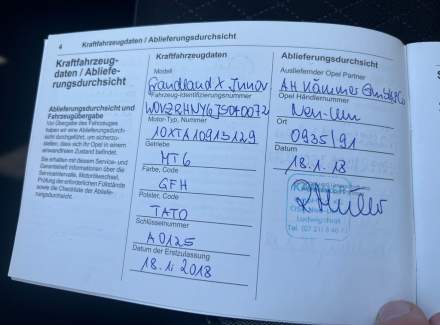 4 Kraftfahrzeugdaten / Ablieferungsdurchsicht
Kraftfahrzeug-
daten / Abliefe-
rungsdurchsicht
Ablieferungsdurchsicht und
Fahrzeugübergabe
Vor Übergabe des Fahrzeuges
haben wir eine Ablieferungsdurch-
sicht durchgeführt, um sicherzu-
stellen, dass sich Ihr Opel in einem
einwandfreien Zustand befindet.
Sie erhalten mit diesem Service- und
Garantieheft Informationen über die
Serviceintervalle, Motorölwechsel,
Prüfung der erforderlichen Füllstände
sowie die Checkliste der Abliefe-
rungsdurchsicht.
Kraftfahrzeugdaten
Modell
Grandland X
Fahrzeug-Identifizierungsnummer
Motor-Typ, Nummer
10XTA10913129
Getriebe
MT6
Farbe, Code
GFH
Polster, Code
TATO
Schlüsselnummer
A0125
Datum der Erstzulassung
18.1.2018
Ablieferungsdurchsicht
Ausliefernder Opel Partner
AH
Opel Händlernummer
Ort
0935/91
Datum
18.1.18